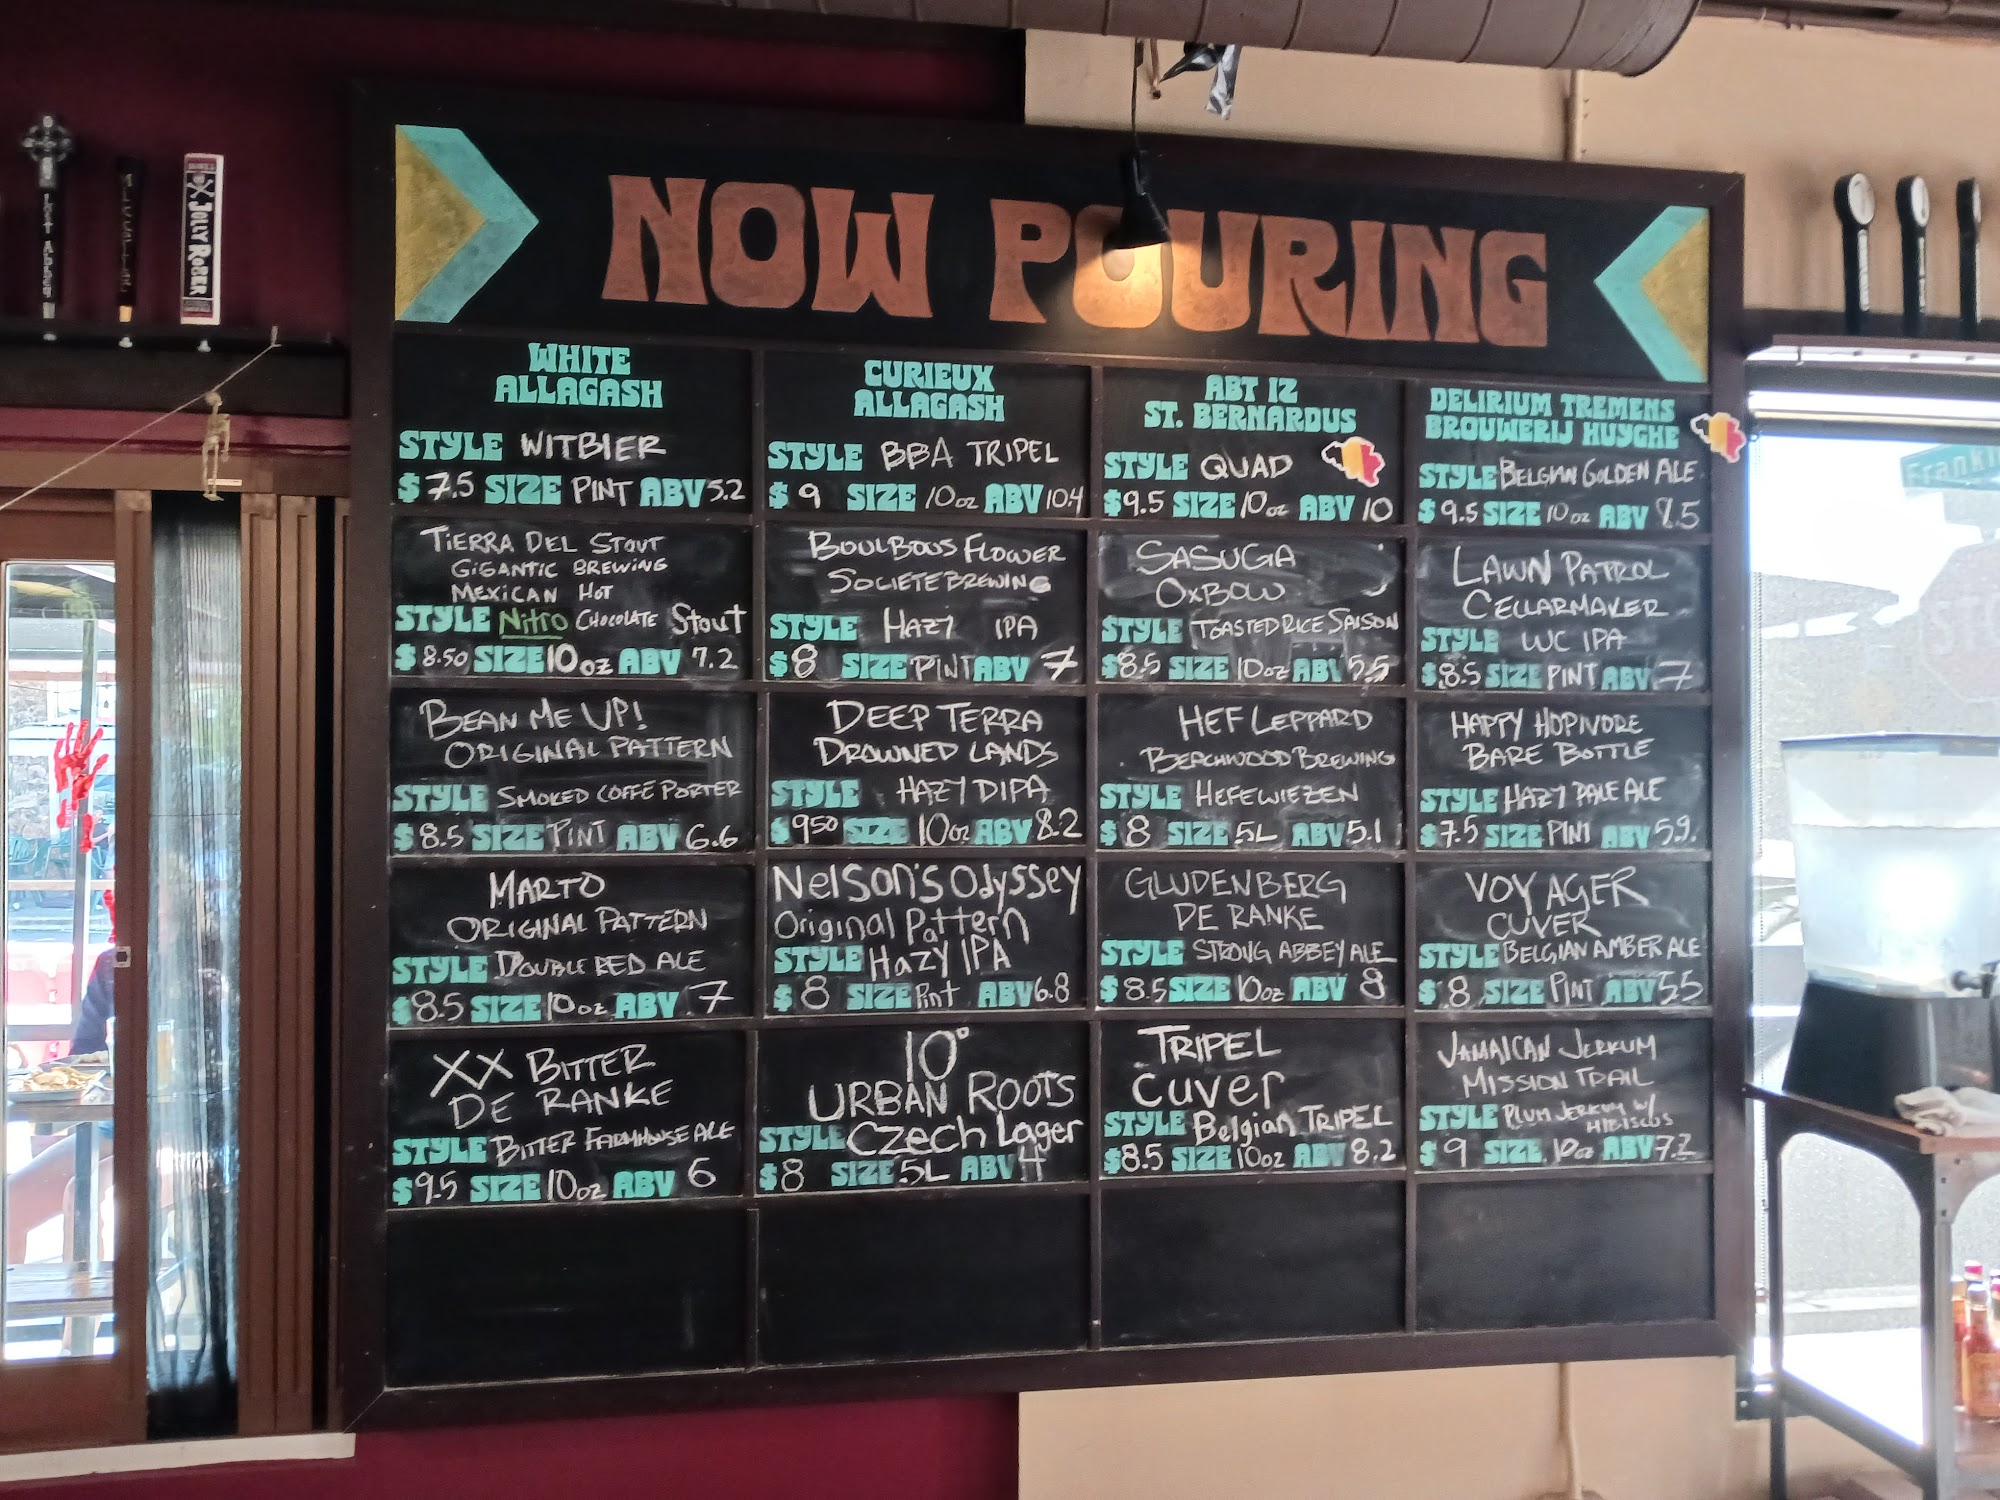 NOW POURING
JOLLY ROGER
WHITE
ALLAGASH
STYLE WITBIER
$7.5 SIZE PINT ABV 5.2
CURIEUX
ALLAGASH
STYLE BBA TRIPEL
$9 SIZE 10oz ABV 10.4
ABT 12
ST. BERNARDUS
STYLE QUAD
$9.5 SIZE 10oz ABV 10
DELIRIUM TREMENS
BROUWERIJ HUYGHE
STYLE BELGIAN GOLDEN ALE
$9.5 SIZE 10oz ABV 8.5
TIERRA DEL STOUT
GIGANTIC BREWING
MEXICAN HOT
STYLE Nitro CHOCOLATE STOUT
$8.50 SIZE 10oz ABV 7.2
BOULBOUS FLOWER
SOCIETE BREWING
STYLE HAZY IPA
$8 SIZE PINT ABV 7
SASUGA
OXBOW
STYLE TOASTED RICE SAISON
$8.5 SIZE 10oz ABV 5.5
LAWN PATROL
CELLARMAKER
STYLE WC IPA
$8.5 SIZE PINT ABV 7
BEAN ME UP!
ORIGINAL PATTERN
STYLE SMOKED COFFE PORTER
$8.5 SIZE PINT ABV 6.6
DEEP TERRA
DROWNED LANDS
STYLE HAZY DIPA
$9.50 SIZE 10oz ABV 8.2
HEF LEPPARD
BEACHWOOD BREWING
STYLE HEFEWIEZEN
$8 SIZE .5L ABV 5.1
HAPPY HOPIVORE
BARE BOTTLE
STYLE HAZY PALE ALE
$7.5 SIZE PINT ABV 5.9.
MARTO
ORIGINAL PATTERN
STYLE DOUBLE RED ALE
$8.5 SIZE 10oz ABV 7
Nelson's Odyssey
Original Pattern
STYLE Hazy IPA
$8 SIZE Pint ABV 6.8
GLUDENBERG
DE RANKE
STYLE STRONG ABBEY ALE
$8.5 SIZE 10oz ABV 8
VOYAGER
CUVER
STYLE BELGIAN AMBER ALE
$8 SIZE PINT ABV 5.5
XX BITTER
DE RANKE
STYLE BITTER FARMHOUSE ALE
$9.5 SIZE 10oz ABV 6
10°
URBAN ROOTS
STYLE Czech Lager
$8 SIZE .5L ABV 4
TRIPEL
Cuver
STYLE Belgian TRIPEL
$8.5 SIZE 10oz ABV 8.2
JAMAICAN JERKUM
MISSION TRAIL
STYLE PLUM JERKUM W/
HIBISCUS
$9 SIZE 10oz ABV 7.2